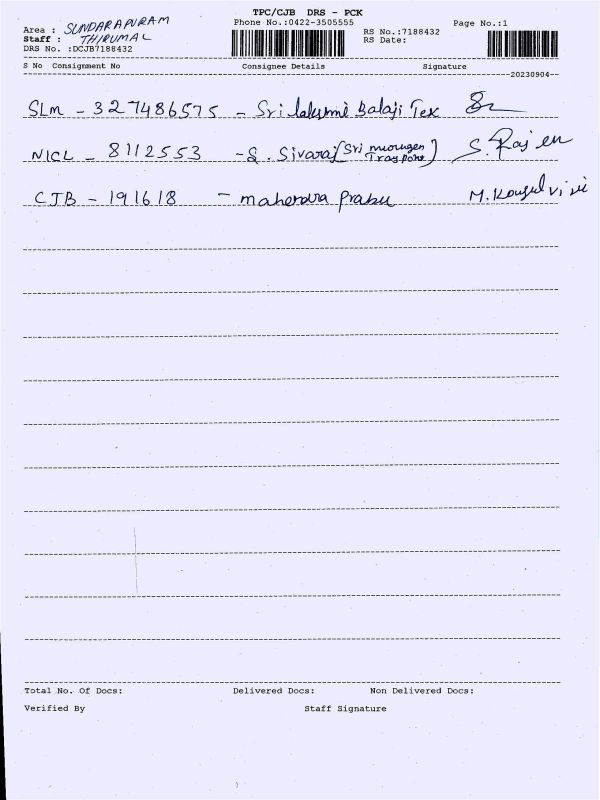 TPC/CJB DRS - PCK
Area : SUNDARAPURAM Phone No.:0422-3505555 Page No.:1
Staff : THIRUMAL RS No.:7188432
DRS No. :DCJB7188432 RS Date:
S No Consignment No Consignee Details Signature
20230904
SLM - 327486575 - Sri lakshmi Balaji Tex
NICL - 8112553 - S. Sivaraj (Sri murugan Transport) S. Rajen
CJB - 191618 - mahendra prabu M.
Total No. Of Docs: Delivered Docs: Non Delivered Docs:
Verified By Staff Signature